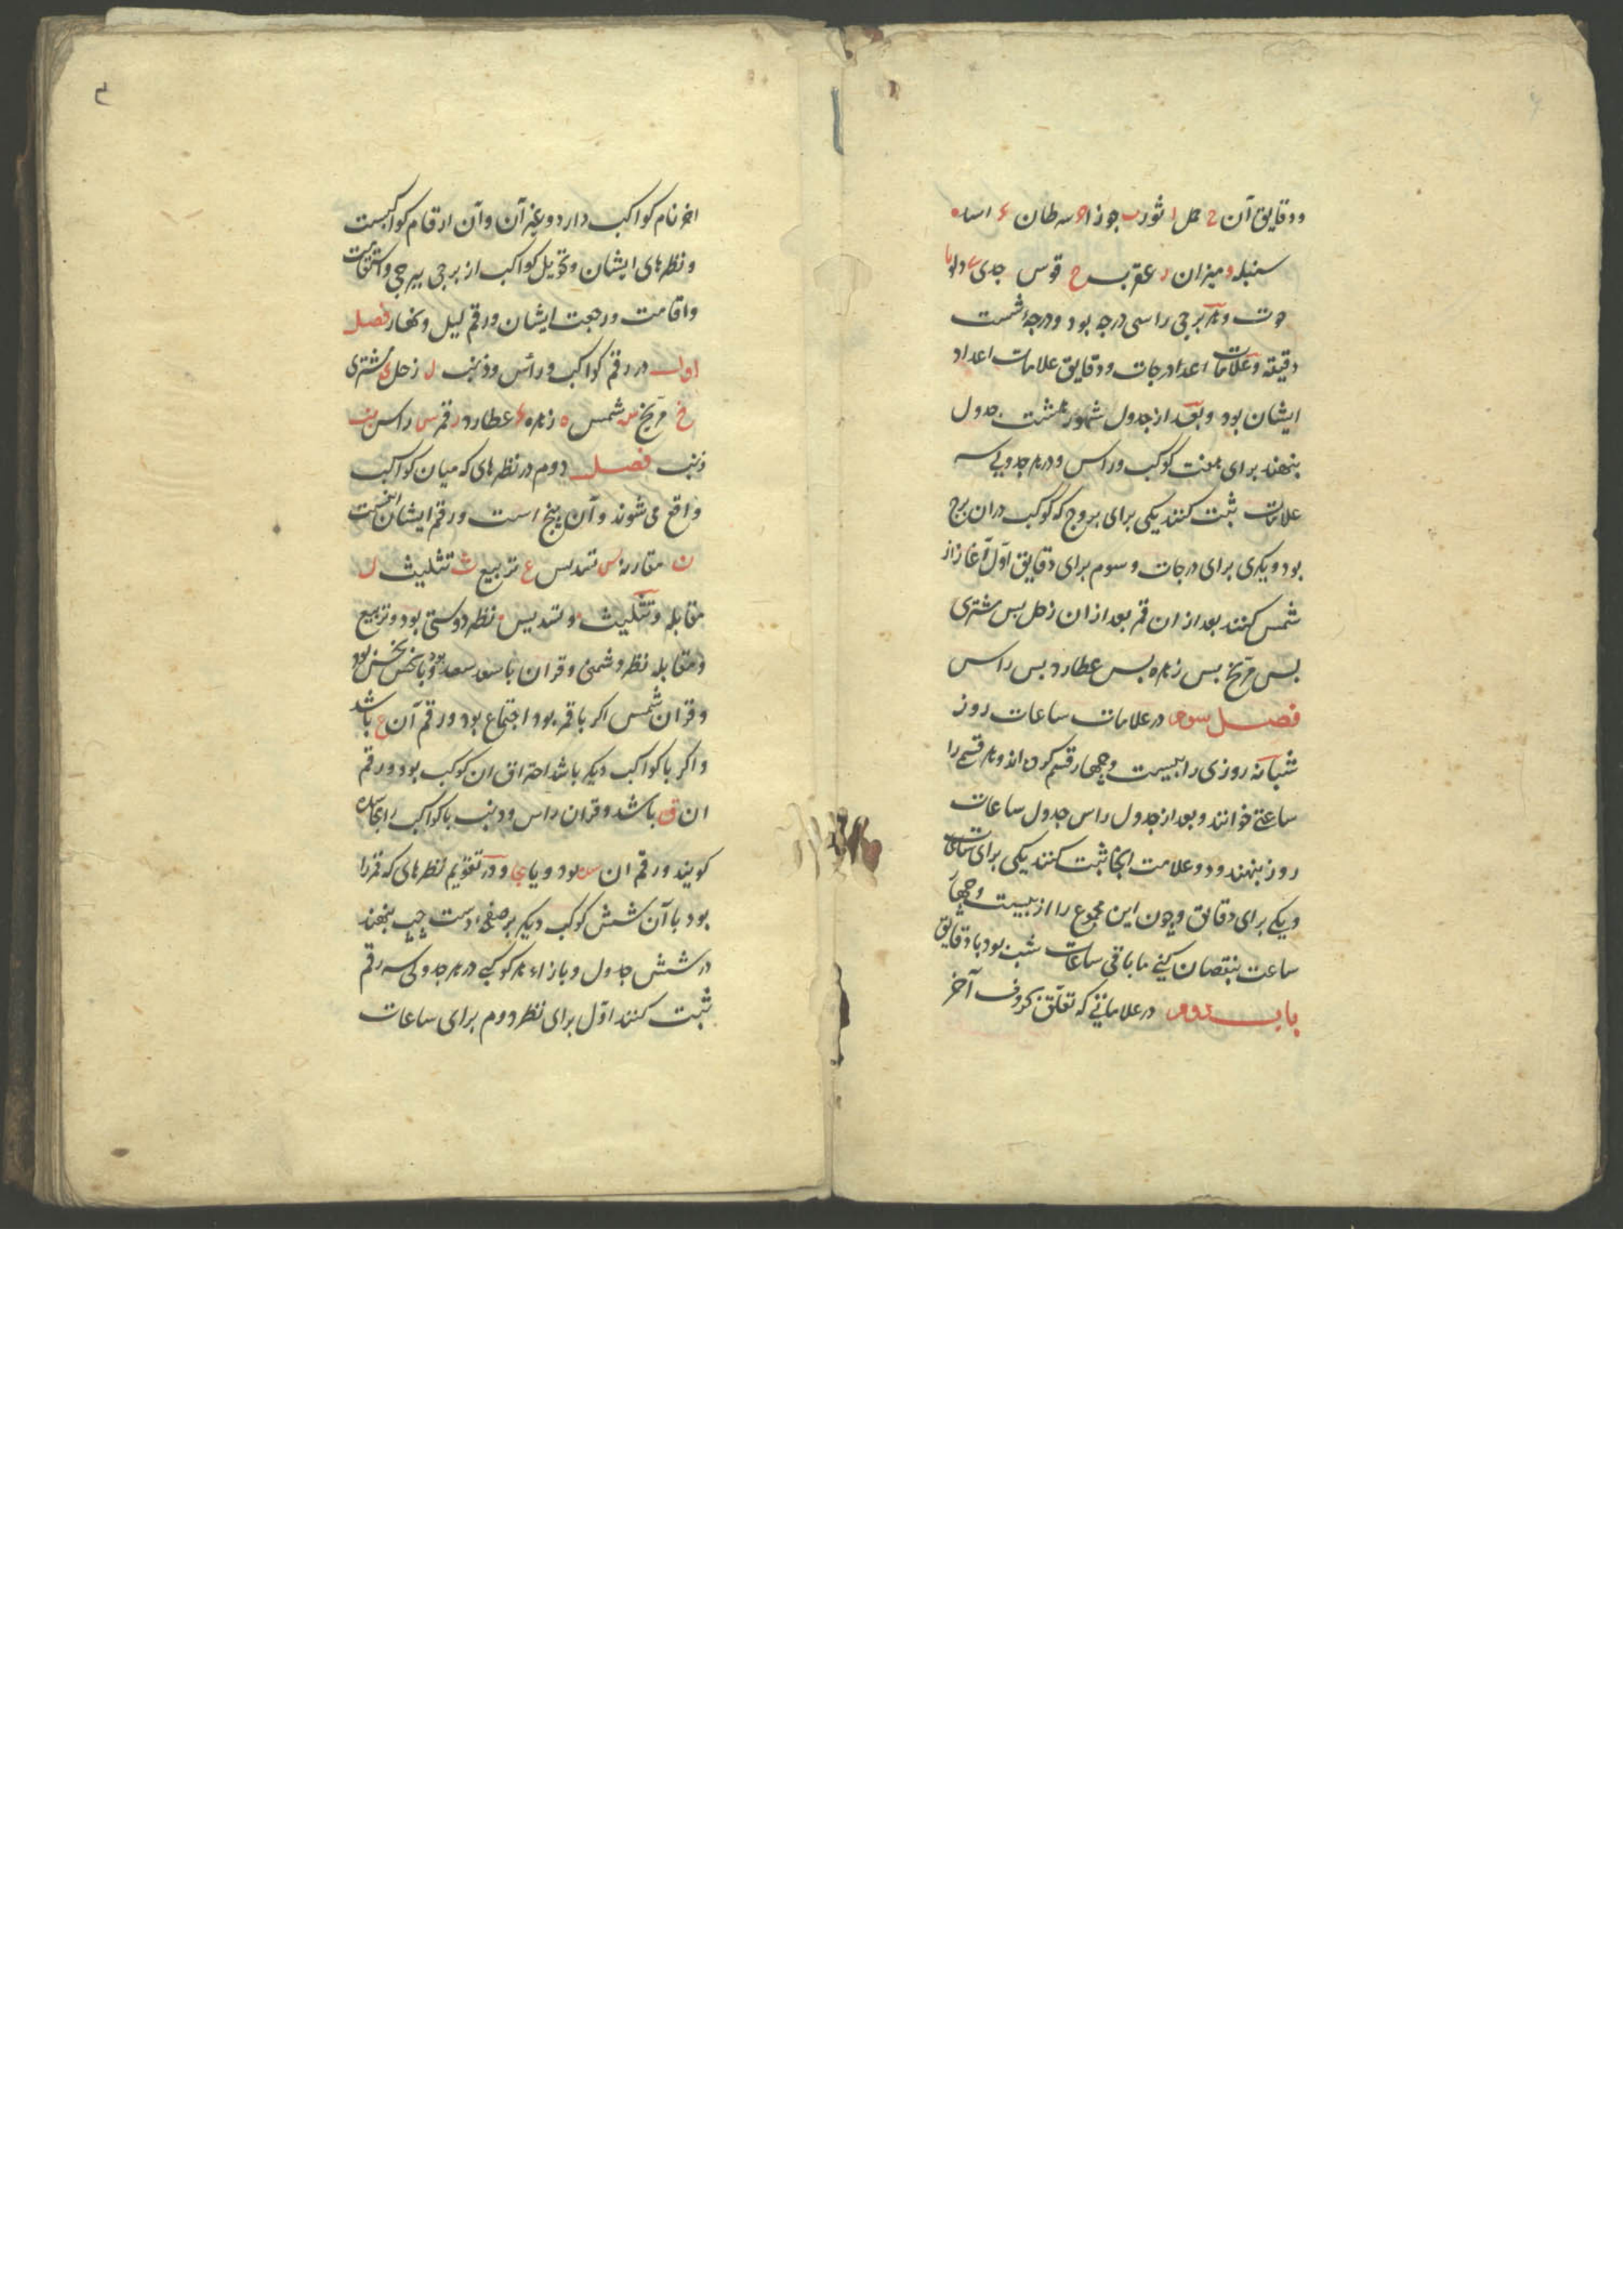 ودقایق آن ح حمل ا ثور ب جوزا ج سرطان ء اسد ه
سنبله و میزان ر عقرب ح قوس جدی ی دلو یا
حوت و هر برجی را سی درجه بود و درجه شصت
دقیقه و علامات اعداد درجات و دقایق علامات اعداد
ایشان بود و بعد از جدول شهور هشت جدول
بنهند برای هفت کوکب و راس و در هر جدولی سه
علامات ثبت کنند یکی برای بروج که کوکب در ان برج
بود و یکری برای درجات و سوم برای دقایق اول آغاز از
شمس کنند بعد از ان قمر بعد از ان زحل بس مشتری
بس مریخ بس زهره بس عطارد بس راس
فصل سوم در علامات ساعات روز
شبانه روزی را ببیست و چهار قسم کرده اند و هر قسمی را
ساعتی خوانند و بعد از جدول راس جدول ساعات
روز بنهند و دو علامت انجا ثبت کنند یکی برای ساعات
و یکی برای دقایق و چون این مجموع را از بیست و چهار
ساعت بنقصان کنی ما باقی ساعات شب بود با دقایق
باب دوم در علاماتی که تعلق بحروف آخر
۳
اخر نام کواکب دارد و غیر آن و آن ارقام کواکبست
و نظرهای ایشان و تحویل کواکب از برجی ببرجی و استقامت
واقامت و رجعت ایشان و رقم لیل و نهار فصل
اول در رقم کواکب و رأس و ذنب ل زحل ی مشتری
خ مریخ س شمس ه زهره ء عطارد ر قمر س راس نب
ذنب فصل دوم در نظرهای که میان کواکب
واقع می شوند و آن پنج است و رقم ایشان اینست
ن مقارنه س تسدیس ع تربیع ث تثلیث ل
مقابله و تثلیث و تسدیس نظر دوستی بود و تربیع
و مقابله نظر دشمنی و قران با سعد سعد بود و با نحس نحس بود
و قران شمس اکر با قمر بود اجتماع بود و رقم آن ع باشد
و اکر با کواکب دیکر باشد احتراق ان کوکب بود و رقم
ان ق باشد و قران راس و ذنب با کواکب را مجاسده
کویند و رقم ان سد بود و یا جا و در تقویم نظرهای که قمر را
بود با آن شش کوکب دیکر بر صفحه دست چپ بنهند
در شش جدول و بازاء هر کوکبی در هر جدولی سه رقم
ثبت کنند اول برای نظر دوم برای ساعات